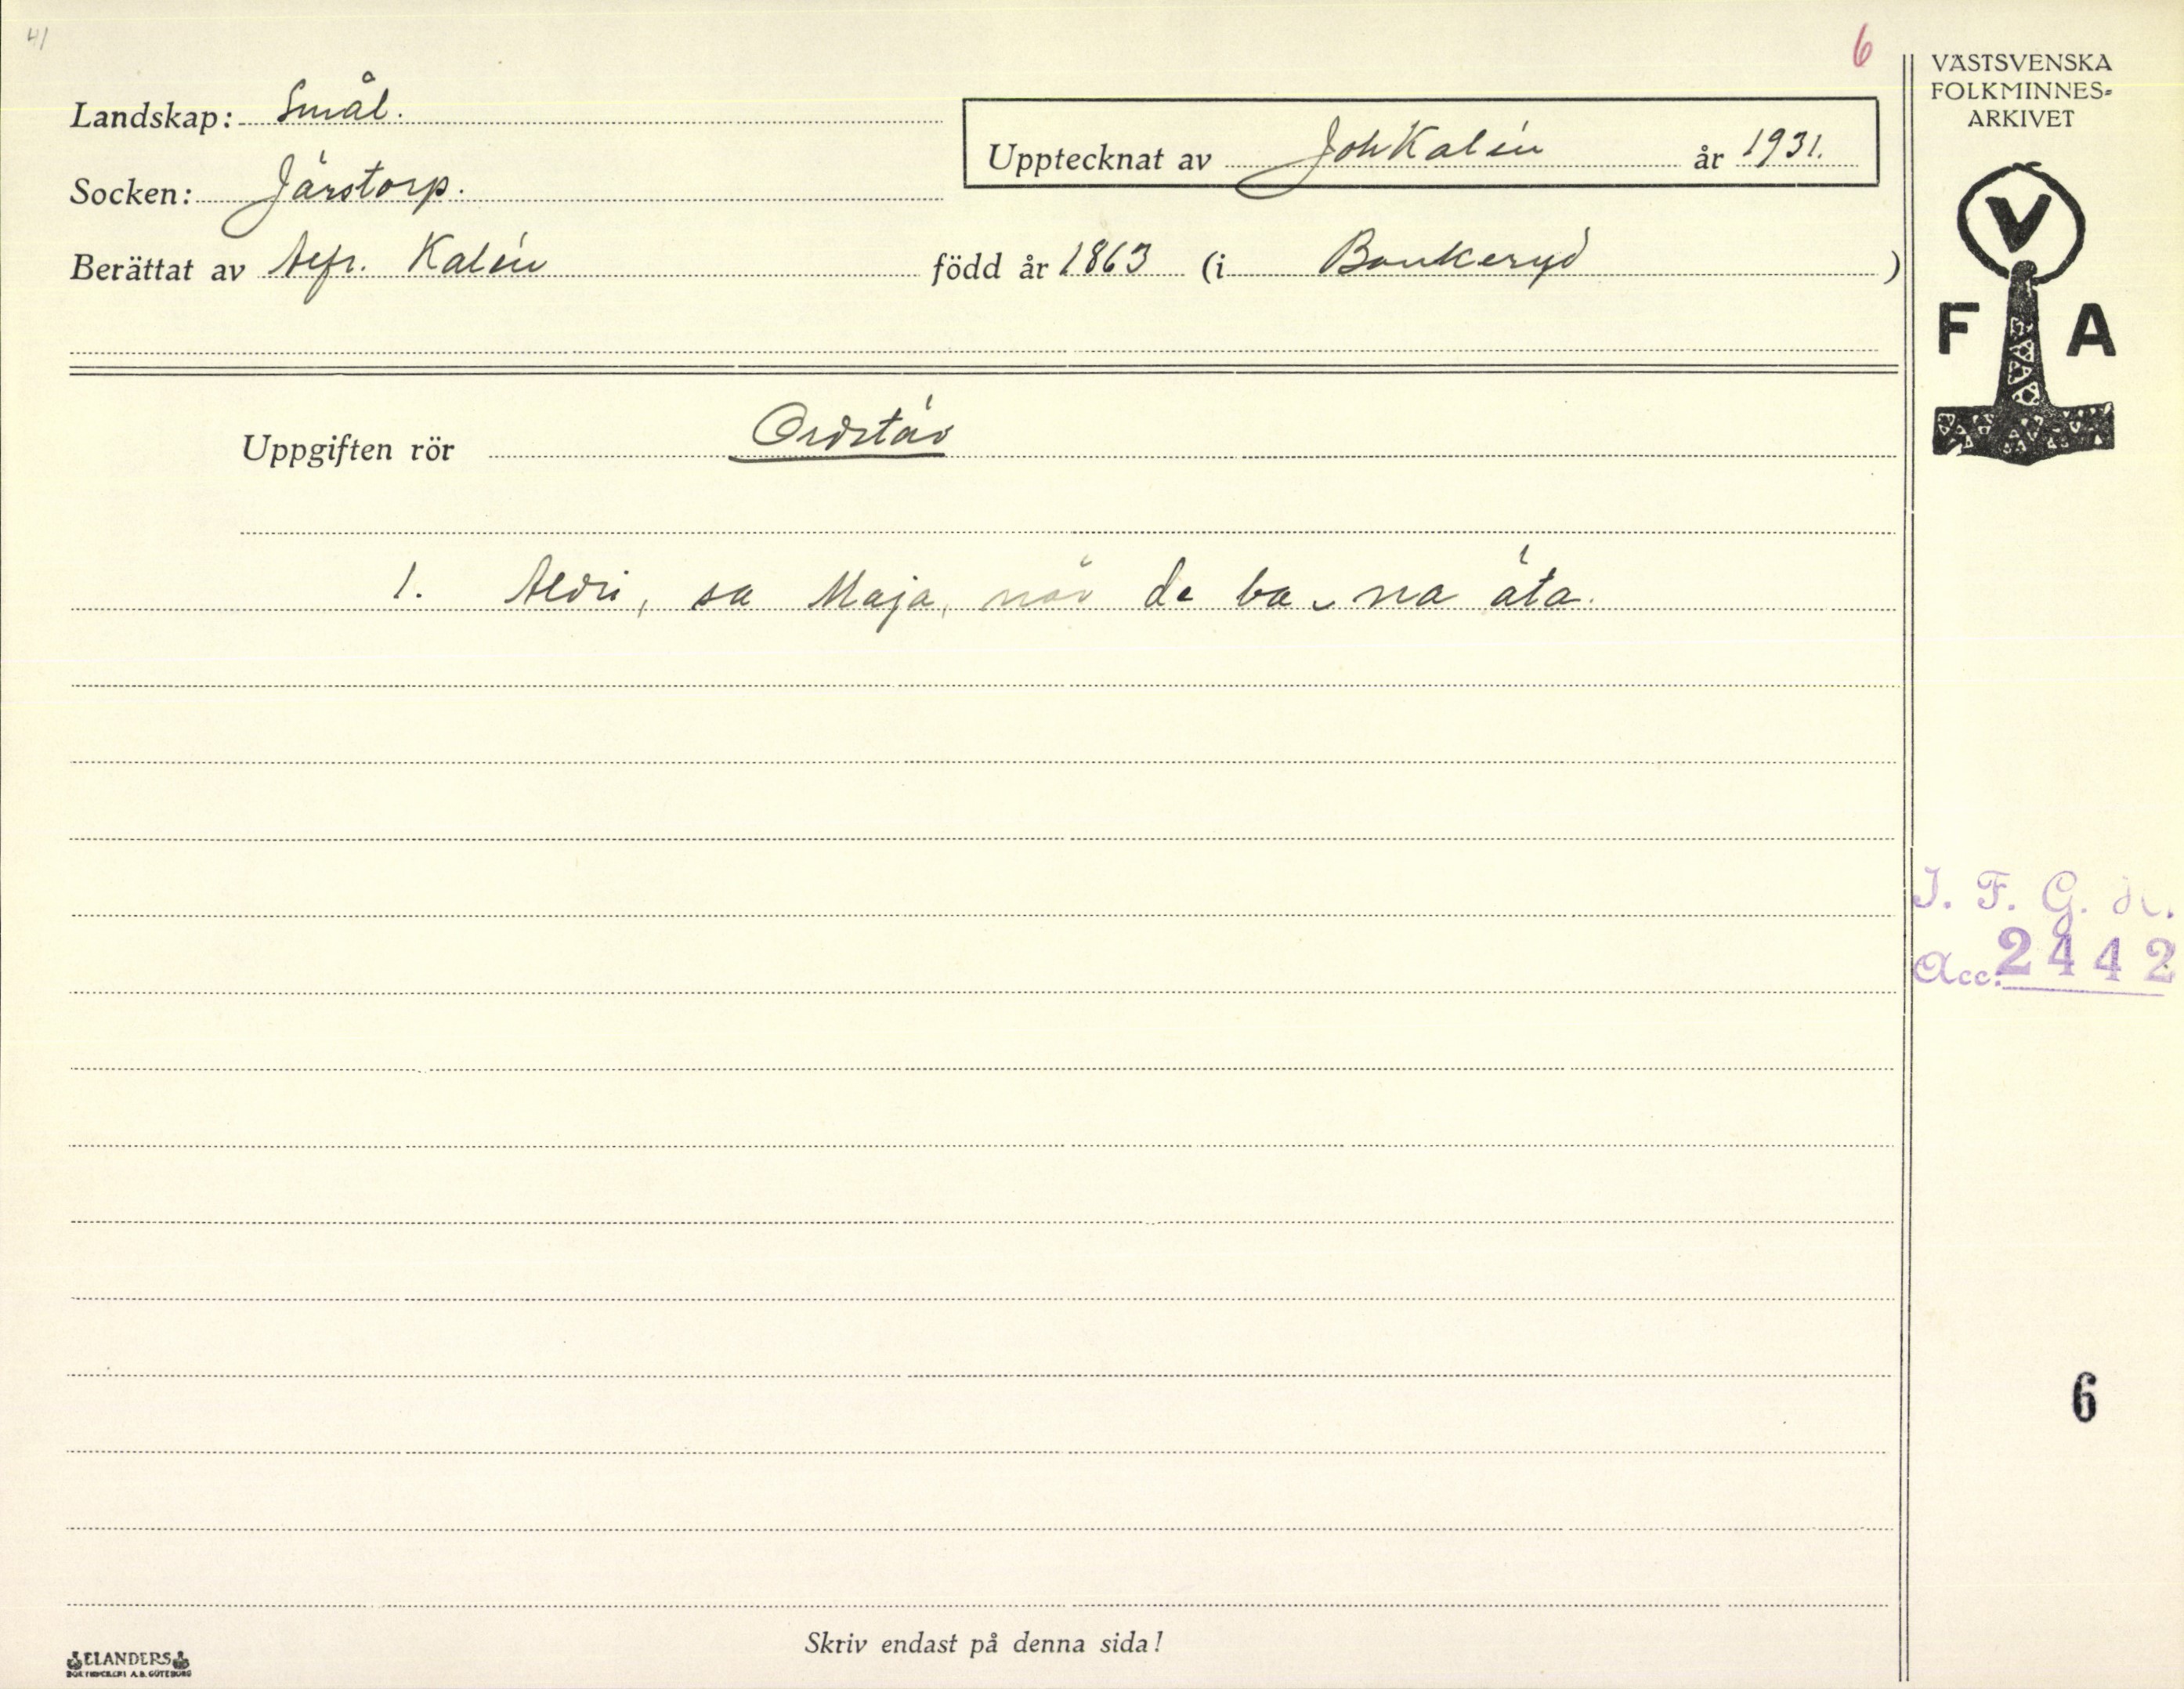 41
6
VÄSTSVENSKA
FOLKMINNES-
ARKIVET
Landskap: Smål.
Upptecknat av Joh Kalén år 1931.
Socken: Järstorp.
Berättat av Alfr. Kalén född år 1863 (i Bankeryd)
V
F A
Uppgiften rör Ordstäv
1. Aldri, sa Maja, når de ba na äta.
I. F. G. H.
Acc. 2442
6
Skriv endast på denna sida!
ELANDERS
BOKTRYCKERI A.B. GÖTEBORG